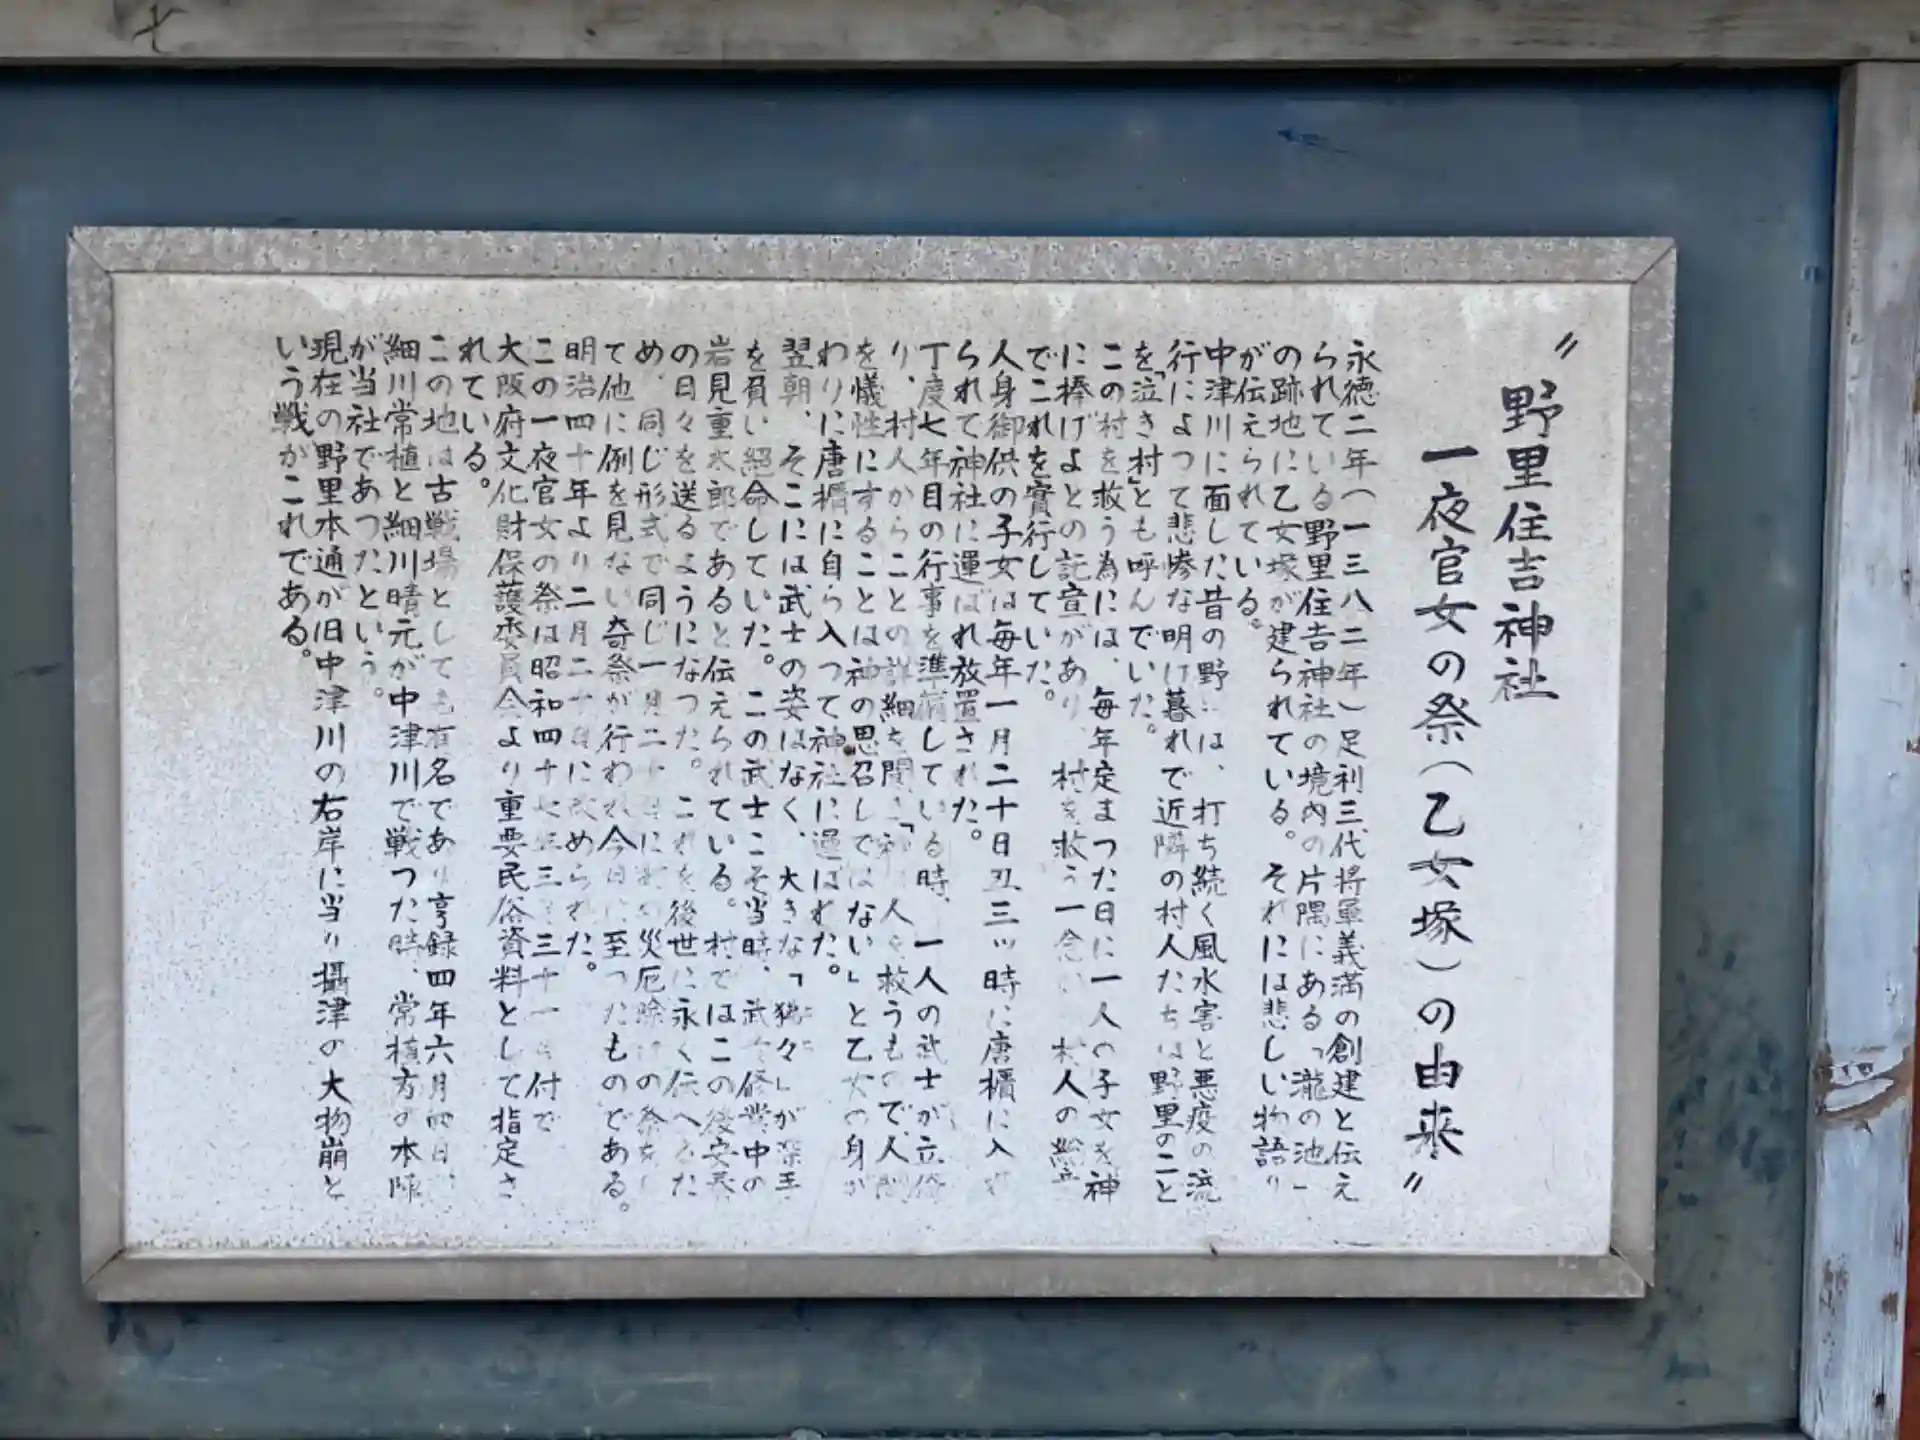 〃野里住吉神社
一夜官女の祭（乙女塚）の由来〃
永徳二年（一三八二年）足利三代将軍義満の創建と伝え
られている野里住吉神社の境内の片隅にある「瀧の池」
の跡地に乙女塚が建られている。それには悲しい物語り
が伝えられている。
中津川に面した昔の野 は、打ち続く風水害と悪疫の流
行によつて悲惨な明け暮れで近隣の村人たちは野里のこと
を「泣き村」とも呼んでいた。
この村を救う為には、毎年定まつた日に一人の子女を神
に捧げよとの託宣があり、村を救う一念 村人の総意
でこれを實行していた。
人身御供の子女は毎年一月二十日丑三ッ時に唐櫃に入れ
られて神社に運ばれ放置された。
丁度七年目の行事を準備している時、一人の武士が立寄
り、村人からことの詳細を聞き「神 人を救うもので、人間
を犠性にすることは神の思召しではない」と乙女の身が
わりに唐櫃に自ら入つて神社に運ばれた。
翌朝、そこには武士の姿はなく、大きな「狒々」が深手
を負い絶命していた。この武士こそ当時、武者修業中の
岩見重太郎であると伝えられている。村ではこの後安泰
の日々を送るようになつた。これを後世に永く伝へるた
め、同じ形式で同じ一月二十日に 災厄除けの祭をし
て他に例を見ない奇祭が行われ今日に至つたものである。
明治四十年より二月二十日に改められた。
この一夜官女の祭は昭和四十七年三月三十一日付で
大阪府文化財保護委員会より重要民俗資料として指定さ
れている。
この地は古戦場としても有名であり享録四年六月四日、
細川常植と細川晴元が中津川で戦つた時、常植方の本陣
が当社であつたという。
現在の野里本通が旧中津川の右岸に当り攝津の大物崩と
いう戦がこれである。